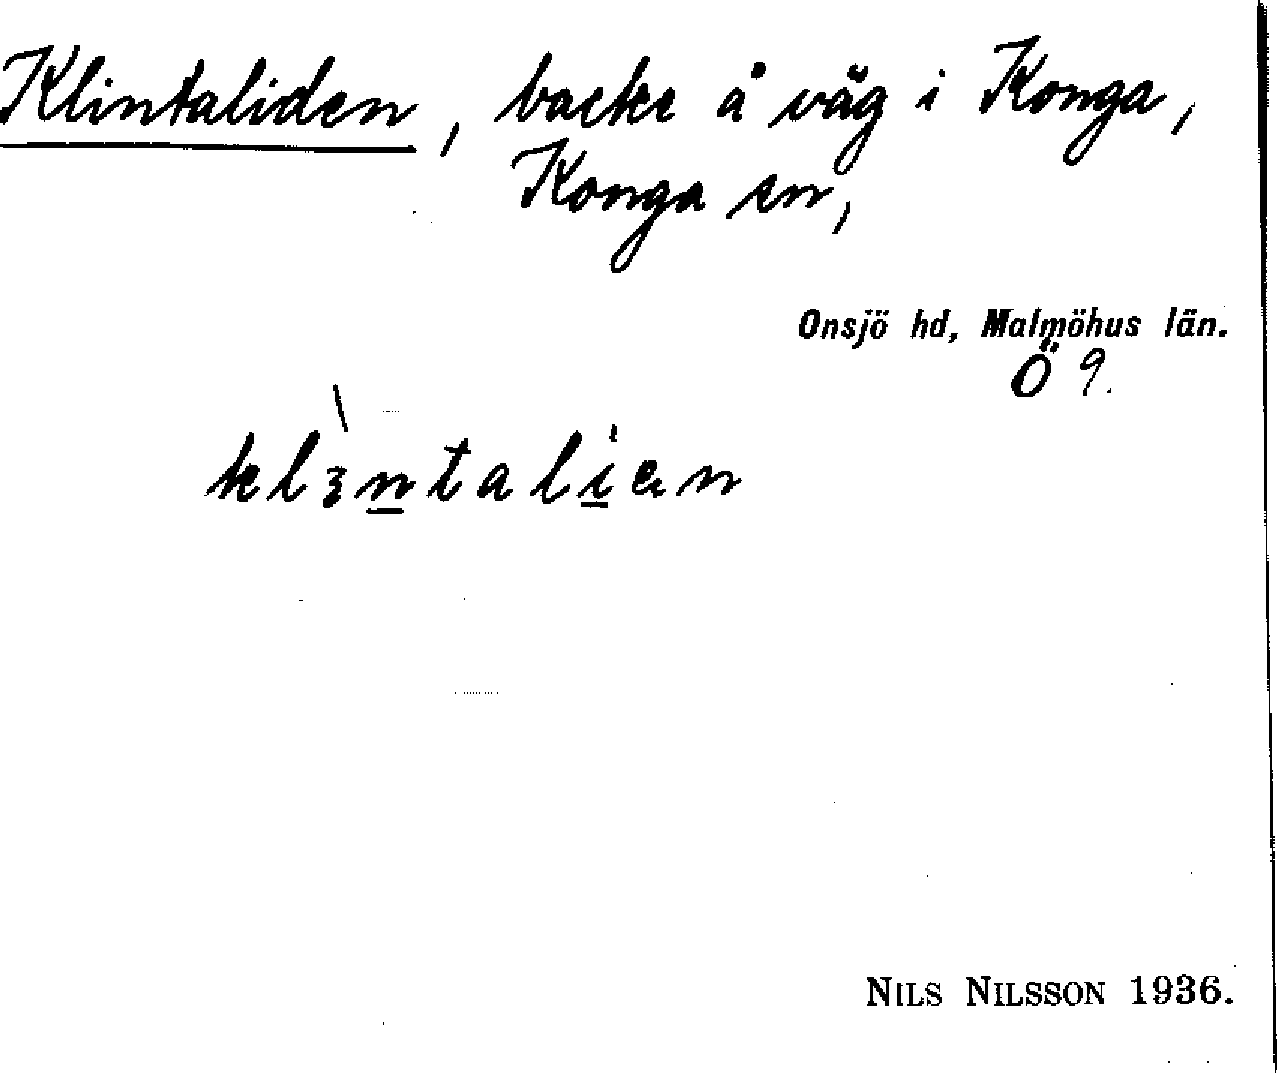 Klintaliden, backe å väg i Konga,
Konga sn,
Onsjö hd, Malmöhus län.
Ö 9.
klɜ̀n̲tali̲en
NILS NILSSON 1936.